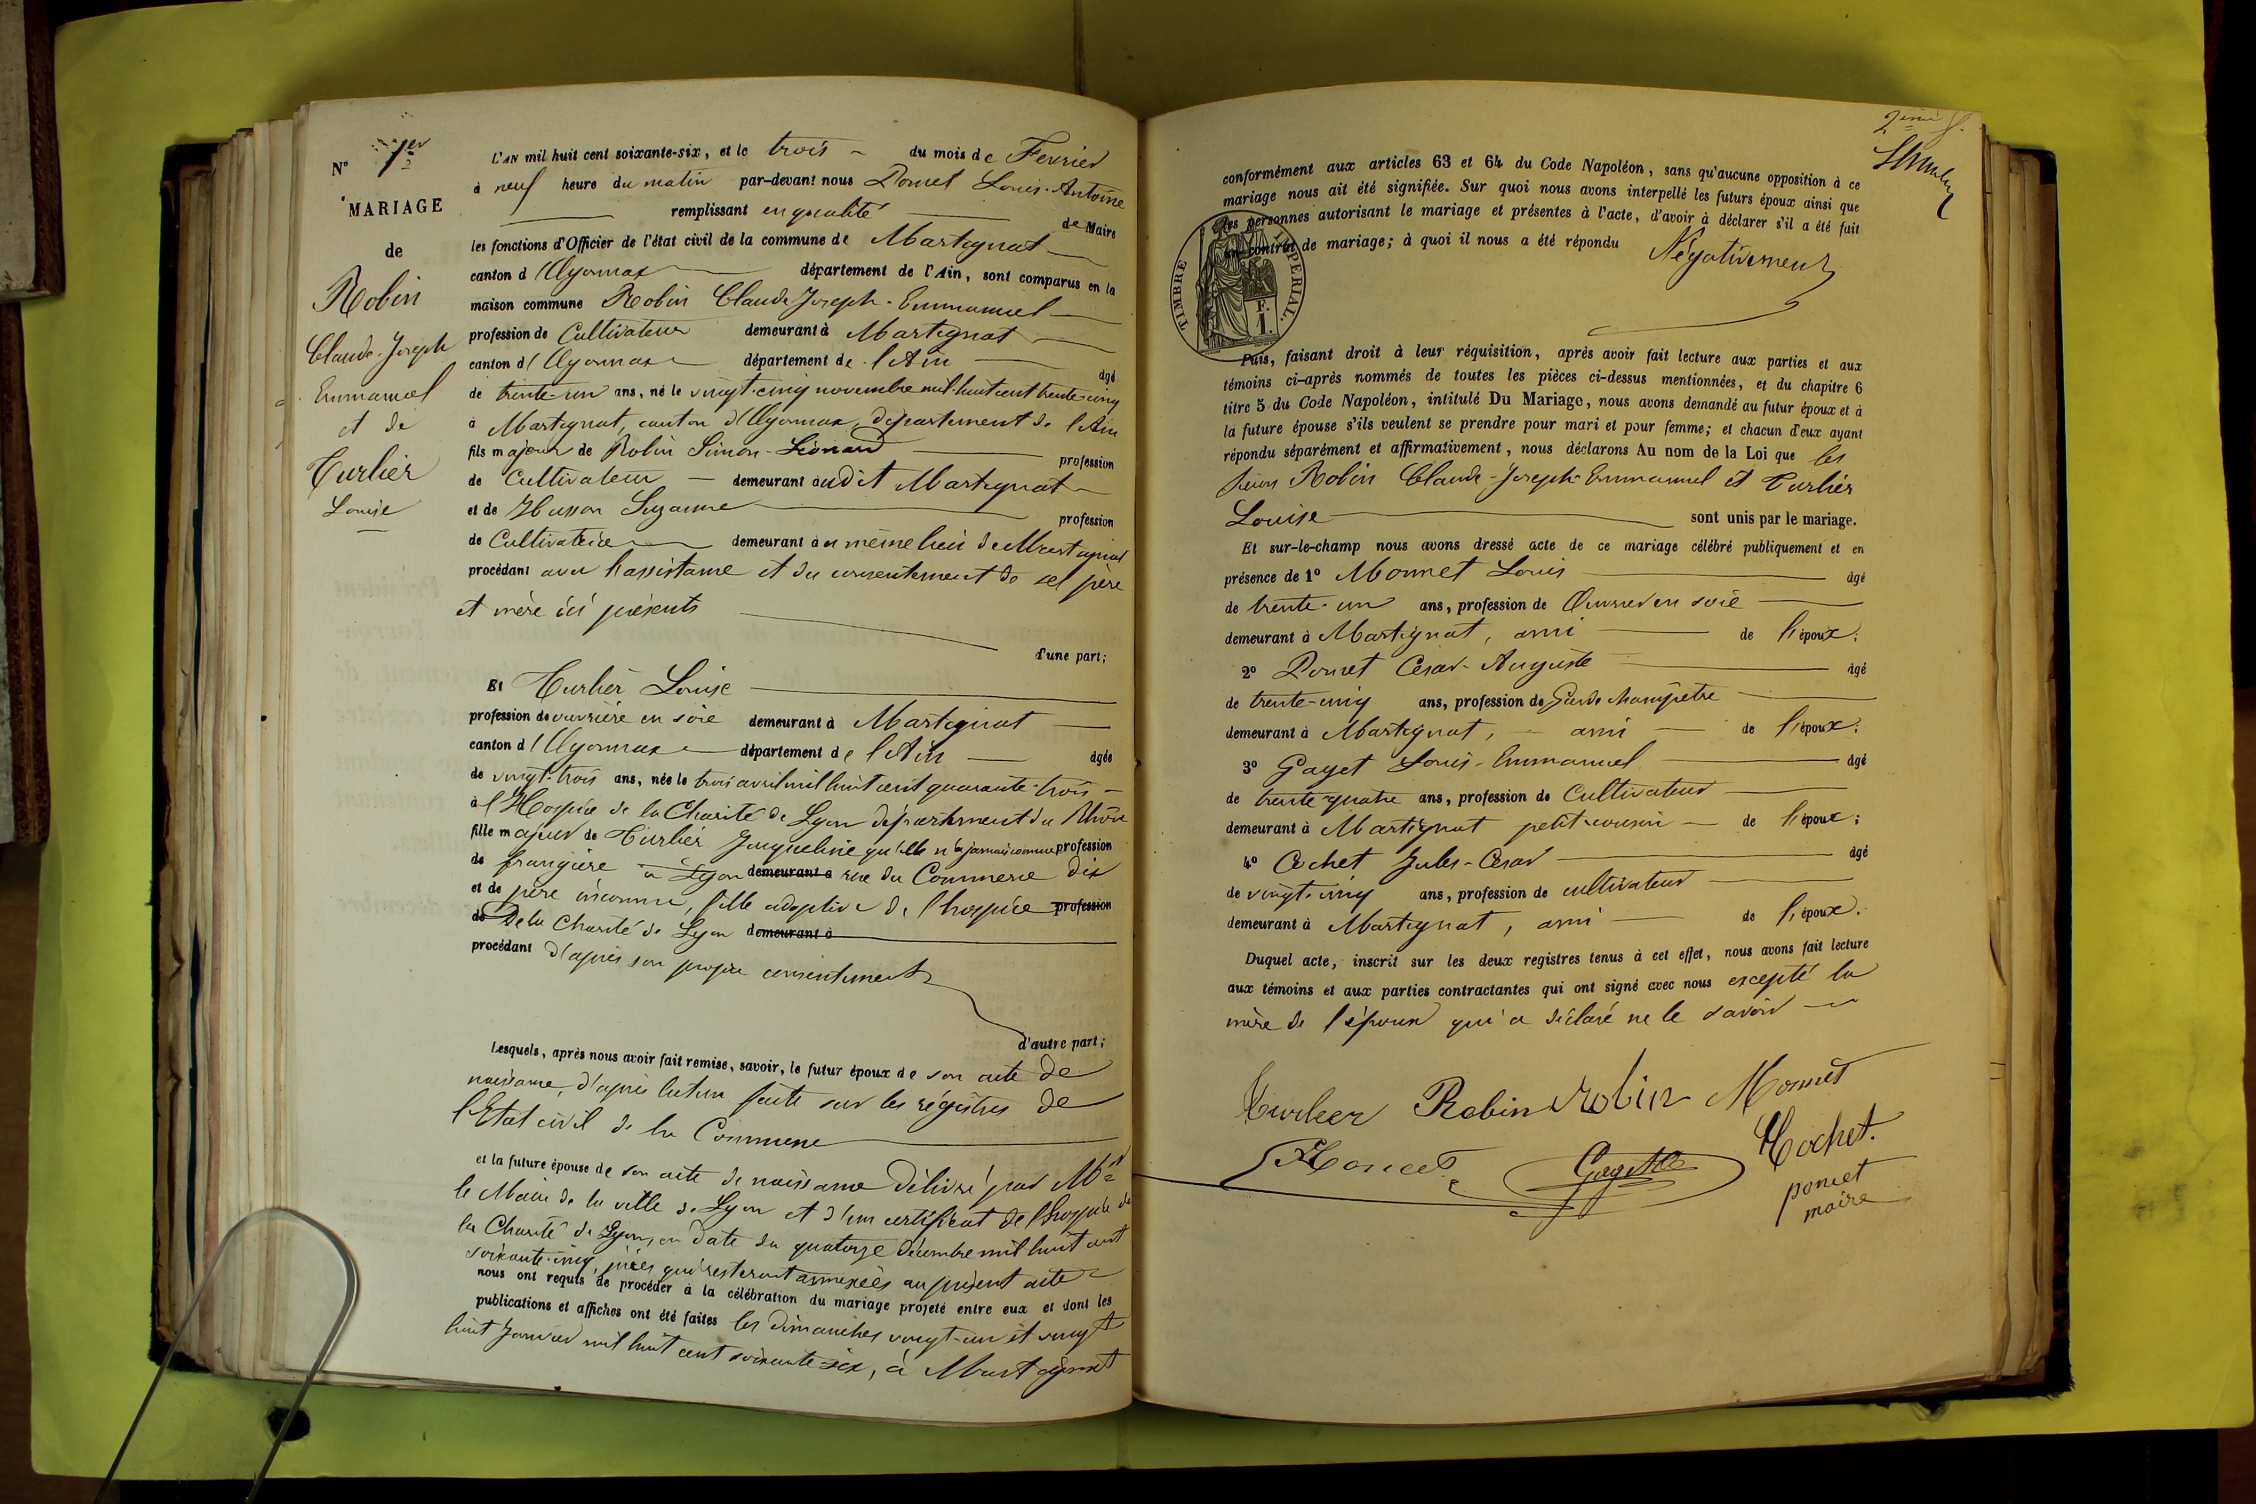 N° 1er
MARIAGE
de
Robin
Claude-Joseph
Emmanuel
et de
Curlier
Louise
L'AN mil huit cent soixante-six, et le trois du mois de Fevrier
à neuf heure du matin par-devant nous Poncet Louis-Antoine
remplissant en qualité de Maire
les fonctions d'Officier de l'état civil de la commune de Martignat
canton d'Oyonnax département de l'Ain, sont comparus en la
maison commune Robin Claude Joseph-Emmanuel
profession de Cultivateur demeurant à Martignat
canton d'Oyonnax département de l'Ain âgé
de trente-un ans, né le vingt-cinq novembre mil huit cent trente-cinq
à Martignat, canton d'Oyonnax, département de l'Ain
fils majeur de Robin Simon-Léonard profession
de Cultivateur demeurant audit Martignat
et de Husson Suzanne profession
de Cultivatrice demeurant au même lieu de Martignat
procédant avec l'assistance et du consentement de ses père
et mère ici présents
d'une part;
Et Curlier Louise
profession de ouvrière en soie demeurant à Martignat
canton d'Oyonnax département de l'Ain âgée
de vingt-trois ans, née le trois avril mil huit cent quarante-trois
à l'Hospice de la Charité de Lyon département du Rhône
fille majeur de Curlier Jacqueline qu'elle n'a jamais connue profession
de frangière à Lyon demeurant à rue du Commerce dix
et de père inconnu, fille adoptive de l'hospice profession
de De la Charité de Lyon demeurant à
procédant d'après son propre consentement
d'autre part;
Lesquels, après nous avoir fait remise, savoir, le futur époux de son acte de
naissance, d'après lecture faite sur les régistres de
l'Etat civil de la Commune
et la future épouse de son acte de naissance délivré par Mr
le Maire de la ville de Lyon et d'un certificat de l'hospice de
la Charité de Lyon, en date du quatorze décembre mil huit cent
soixante-cinq, pièces qui resteront annexées au présent acte
nous ont requis de procéder à la célébration du mariage projeté entre eux et dont les
publications et affiches ont été faites les dimanches vingt-un et vingt
huit Janvier mil huit cent soixante-six, à Martignat
2ème f.
conformément aux articles 63 et 64 du Code Napoléon, sans qu'aucune opposition à ce
mariage nous ait été signifiée. Sur quoi nous avons interpellé les futurs époux ainsi que
les personnes autorisant le mariage et présentes à l'acte, d'avoir à déclarer s'il a été fait
un contrat de mariage; à quoi il nous a été répondu Négativement
TIMBRE IMPERIAL.
1 F.
Puis, faisant droit à leur réquisition, après avoir fait lecture aux parties et aux
témoins ci-après nommés de toutes les pièces ci-dessus mentionnées, et du chapitre 6
titre 5 du Code Napoléon, intitulé Du Mariage, nous avons demandé au futur époux et à
la future épouse s'ils veulent se prendre pour mari et pour femme; et chacun d'eux ayant
répondu séparément et affirmativement, nous déclarons Au nom de la Loi que les
sieurs Robin Claude-Joseph-Emmanuel et Curlier
Louise sont unis par le mariage.
Et sur-le-champ nous avons dressé acte de ce mariage célébré publiquement et en
présence de 1° Monnet Louis âgé
de trente-un ans, profession de Ouvrier en soie
demeurant à Martignat, ami de l'époux;
2° Poncet César-Auguste âgé
de trente-cinq ans, profession de Garde champêtre
demeurant à Martignat, ami de l'époux;
3° Gayet Louis-Emmanuel âgé
de trente-quatre ans, profession de Cultivateur
demeurant à Martignat petit-cousin de l'époux;
4° Cochet Jules-César âgé
de vingt-cinq ans, profession de cultivateur
demeurant à Martignat, ami de l'époux.
Duquel acte, inscrit sur les deux registres tenus à cet effet, nous avons fait lecture
aux témoins et aux parties contractantes qui ont signé avec nous excepté la
mère de l'époux qui a déclaré ne le savoir
Curlier Robin Robin Monnet
Poncet Gayet Cochet.
poncet
maire